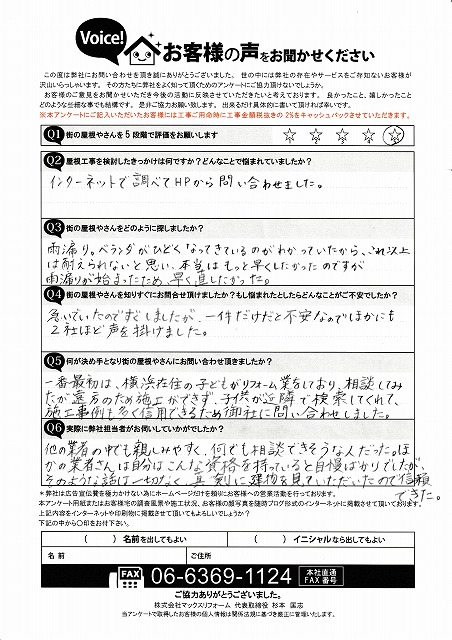 Voice!
お客様の声をお聞かせください
この度は弊社にお問い合わせを頂き誠にありがとうございました。世の中には弊社の存在やサービスをご存知ないお客様が
沢山いらっしゃいます。その方たちに弊社をよく知って頂くためのアンケートにご協力頂けないでしょうか。
お客様のご意見をお聞かせいただき今後の活動に反映させていただきたいと考えております。良かったこと、嬉しかったこと
どのような些細な事でも結構です。是非ご協力お願い致します。出来るだけ具体的に書いて頂ければ幸いです。
※本アンケートにご記入いただいたお客様には工事ご用命時に工事金額税抜きの 2%をキャッシュバックさせていただきます。
Q1 街の屋根やさんを 5 段階で評価をお願いします
☆ ☆ ☆ ☆ ☆
Q2 屋根工事を検討したきっかけは何ですか？どんなことで悩まれていましたか？
インターネットで調べてHPから問い合わせました。
Q3 街の屋根やさんをどのように探しましたか？
雨漏り。ベランダがひどくなってきているのがわかっていたから、これ以上
は耐えられないと思い、本当はもっと早くしたかったのですが
雨漏りが始まったため、早く直したかった。
Q4 街の屋根やさんを知りすぐにお問合せ頂けましたか？もし悩まれたとしたらどんなことがご不安でしたか？
急いでいたのですぐしましたが、一件だけだと不安なのでほかにも
2社ほど声を掛けました。
Q5 何が決め手となり街の屋根やさんにお問い合わせ頂けましたか？
一番最初は、横浜在住の子どもがリフォーム業をしており、相談してみ
たが遠方のため施工ができず、子供が近隣で検索してくれて、
施工事例も多く信用できるため御社に問い合わせしました。
Q6 実際に弊社担当者がお伺いしていかがでしたか？
他の業者の中でも親しみやすく、何でも相談できそうな人だった。ほ
かの業者さんは自分はこんな資格を持っていると自慢ばかりでしたが、
そのような話は一切なく、真剣に建物を見ていただいたので信頼
できた。
＊弊社は広告宣伝費を極力かけない為にホームページだけを頼りにお客様への営業活動を行っております。
本アンケート用紙またはお客様宅の調査風景や施工状況、お客様の顔写真を随時ブログ形式のインターネットに掲載させて頂いております。
上記内容をインターネットや印刷物に掲載させて頂いてもよろしいでしょうか？
下記の中から〇印をお付下さい。
（　　）名前を出してもよい　（　　）イニシャルなら出してもよい
名 前　ご住所
FAX 06-6369-1124 本社直通 FAX 番号
ご協力ありがとうございました。
株式会社マックスリフォーム 代表取締役 杉本 匡志
当アンケートで取得したお客様の個人情報は関係法規に基づき厳正に管理いたします。